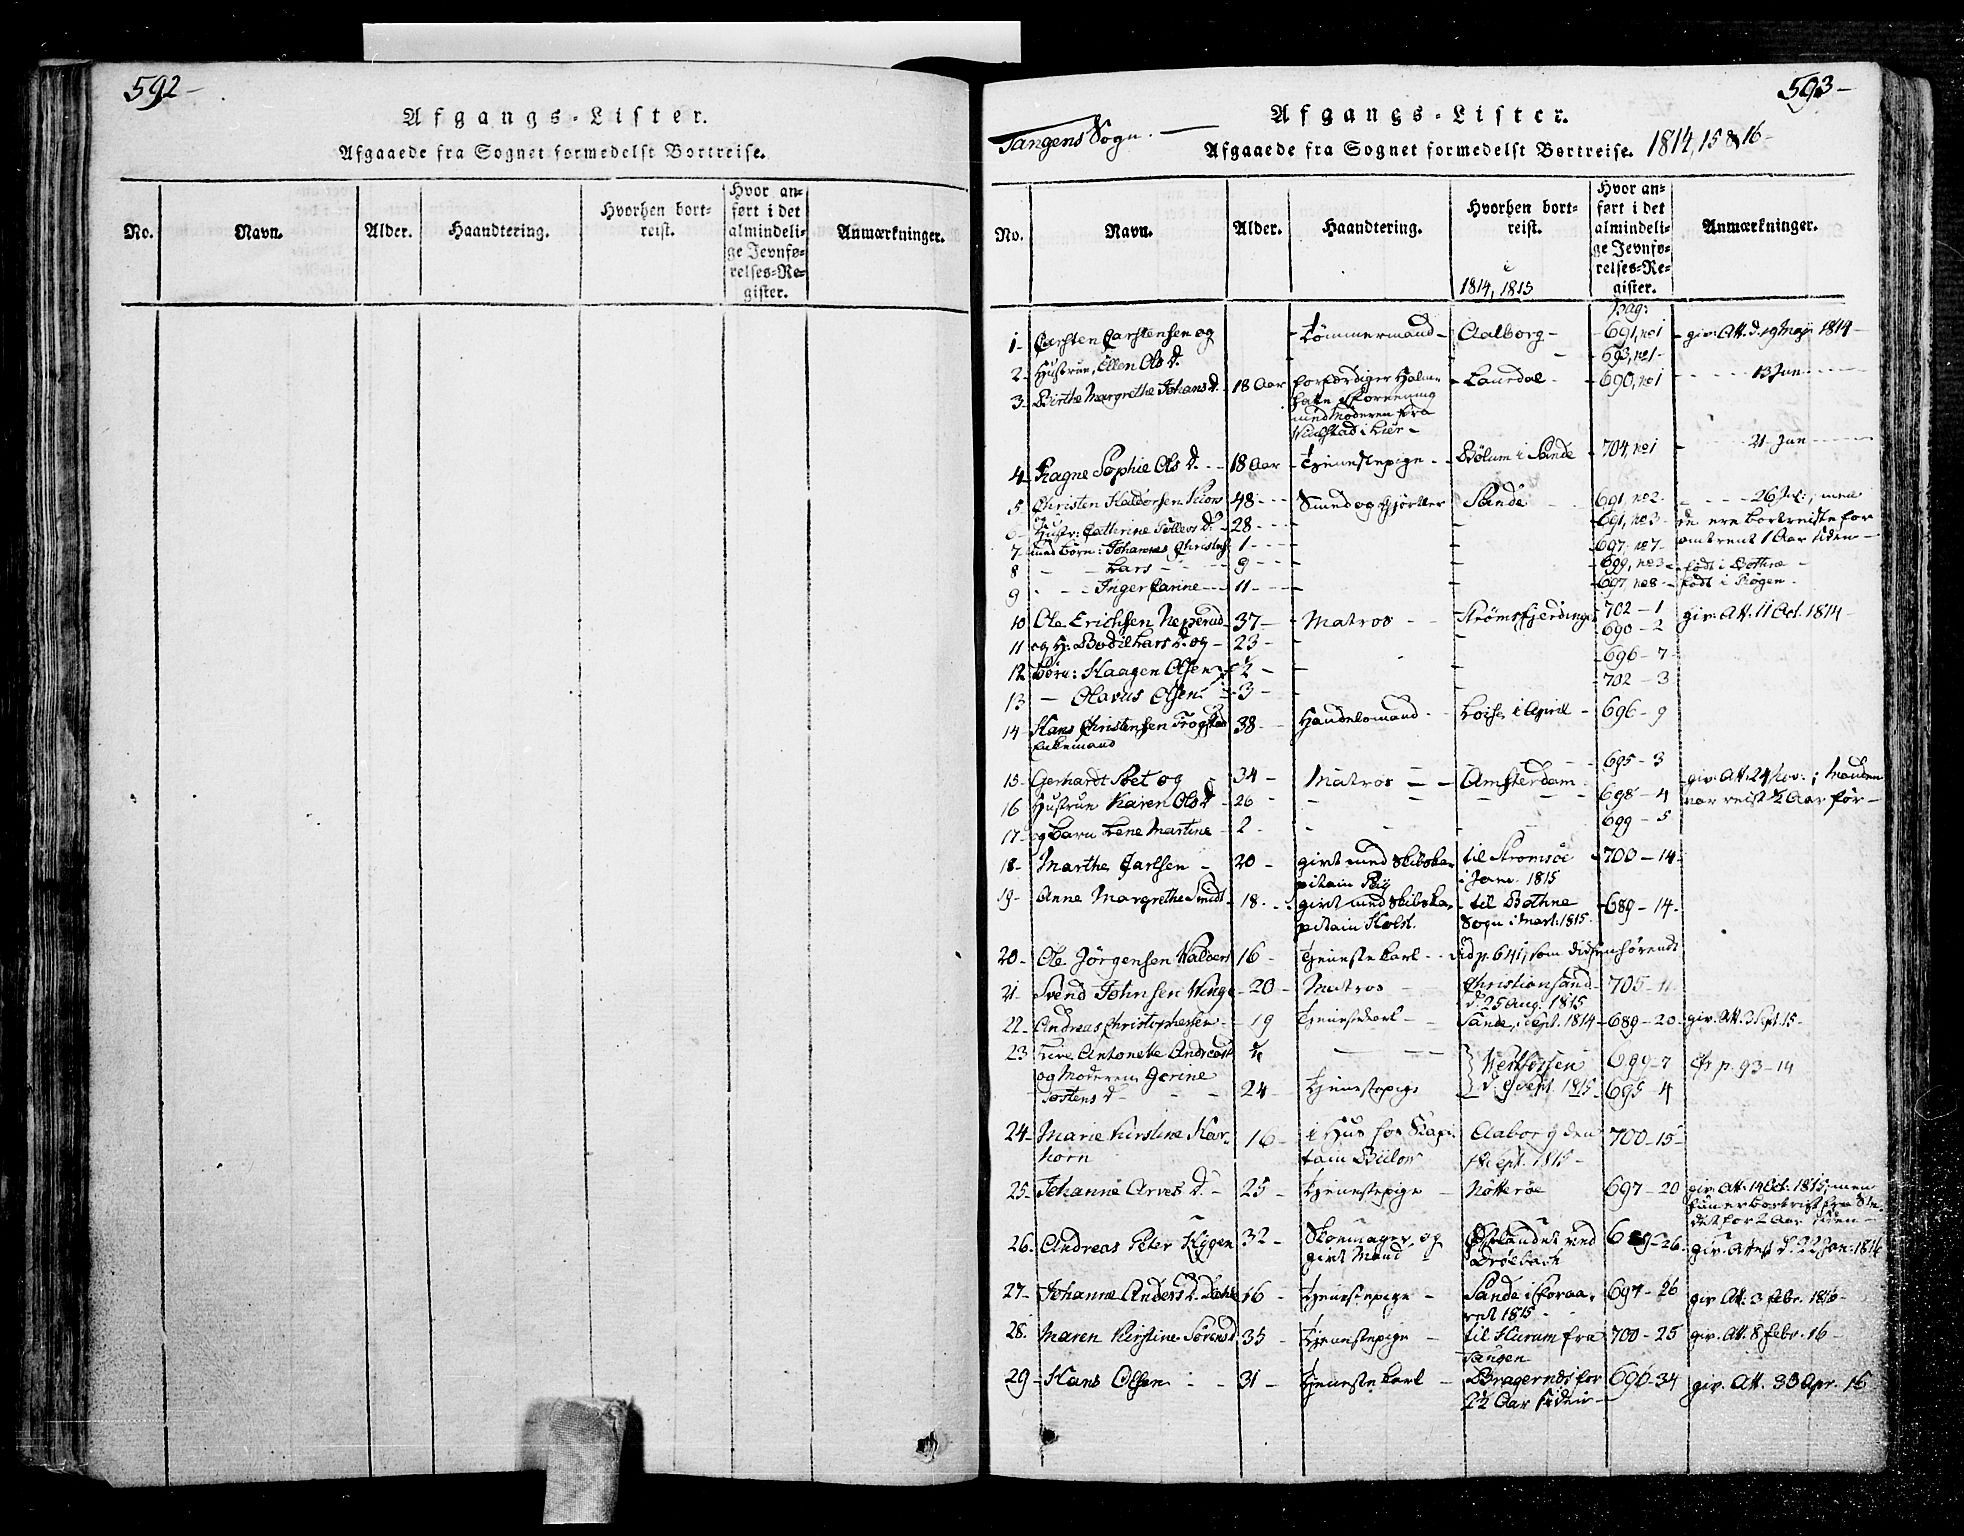 592
Afgangs-Lister.
Afgaaede fra Sognet formedelst Bortreise.
No. Navn. Alder. Haandtering. Hvorhen bortreist. Hvor anført i det almindelige Jevnførelses-Register. Anmærkninger.
593
Afgangs-Lister.
Tangens Sogn.
Afgaaede fra Sognet formedelst Bortreise. 1814, 15 & 16
No. Navn. Alder. Haandtering. Hvorhen bortreist. Hvor anført i det almindelige Jevnførelses-Register. Anmærkninger.
1814, 1815
pag:
1 Carsten Carstensen og Tømmermand Aalborg 691, no 1 giv. Att. d. 19 Maji 1814
2 Hustrue, Ellen Ols d. 693, no 1
3 Birthe Margrethe Johans d. 18 Aar forfærdiger Halm- Laurdal 690, no 1 13 Jun
med Moderen fra
i Lier
4 Ragne Sophie Ols d. 18 Aar Tjenestepige Bølum i Sande 704, no 1 21 Jun
5 Christen Haldorsen 48 Smed og Gjørtler Sande 691, no 2 26 Jul:, men
6 Hustr: Cathrine Tollevs d. 28 691, no 3 de ere bortreiste for
7 med Børn: Johannes Christens 1 697, no 7 omtrent 1 Aar siden
8 Lars 9 699, no 3 født i Bothne
9 Inger Carine 11 697, no 8 født i Røgen
10 Ole Erichsen Nepperud 37 Matros Strømsfjerdingen 702 - 1 giv. Att. 11 Oct. 1814
11 og H: Bodil Lars d. og 23 690 - 2
12 Børn: Haagen Olsen 696 - 7
13 Olavus Olsen 3 702 - 3
14 Hans Christensen Trogstad 38 Handelsmand i April 696 - 9
Enkemand
15 Gerhardt Poet og 34 Matros Amsterdam 695 - 3 giv. Att. 24 Nov.; Manden
16 Hustrue Karen Ols d. 26 698 - 4 var reist ½ Aar før
17 og Barn Lene Martine 2 699 - 5
18 Marthe Carlsen 20 givt med Skibska- til Strømsøe 700 - 14
pitain i Janr. 1815
19 Anne Margrethe Smidt 18 givt med Skibska- til Bothne 689 - 14
pitain Holst. Sogn i Mart: 1815
20 Ole Jørgensen Walders 16 Tjenestekarl vid p. 641, som did henhørende
21 Svend Johnsen Winge 20 Matros Christiansand 705 - 11
d. 25 Aug. 1815
22 Andreas Christophersen 19 Tjenestekarl Sande, i Sept. 1814 689 - 20 giv. Att. 3 Sept. 15
23 Live Antonette Andreasd. Westfossen 699 - 7 cfr p. 93 - 14
og Moderen Gorine 24 Tjenestepige d. 9 Sept. 1815 695 - 4
Torstens d.
24 Marie Kirstine Har- 16 i Huus hos Kap- Aaborg den 700 - 15
horn tain Bülow Sept. 1815
25 Johanne Arves d. 25 Tjenestepige Nøtterøe 697 - 20 giv. Att. 14 Oct. 1815, men
hun er bortreist fra Ste-
det for 2 Aar siden
26 Andreas Peter Kygen 32 Skomager, og Østlandet ved 689 - 26 giv. Attest d. 22 Jan: 1816
givt Mand Drøebach
27 Johanne Anders d. Dahle 16 Tjenestepige Sande i Foraa- 697 - 26 giv. Att. 3 Febr. 1816
ret 1815
28 Maren Kirstine Sørens d. 35 Tjenestepige til Hurum fra 700 - 25 giv. Att. 8 Febr. 16
Tangen
29 Hans Olsen 31 Tjenestekarl Bragernes for 696 - 34 giv. Att. 30 Apr. 16
2½ Aar siden